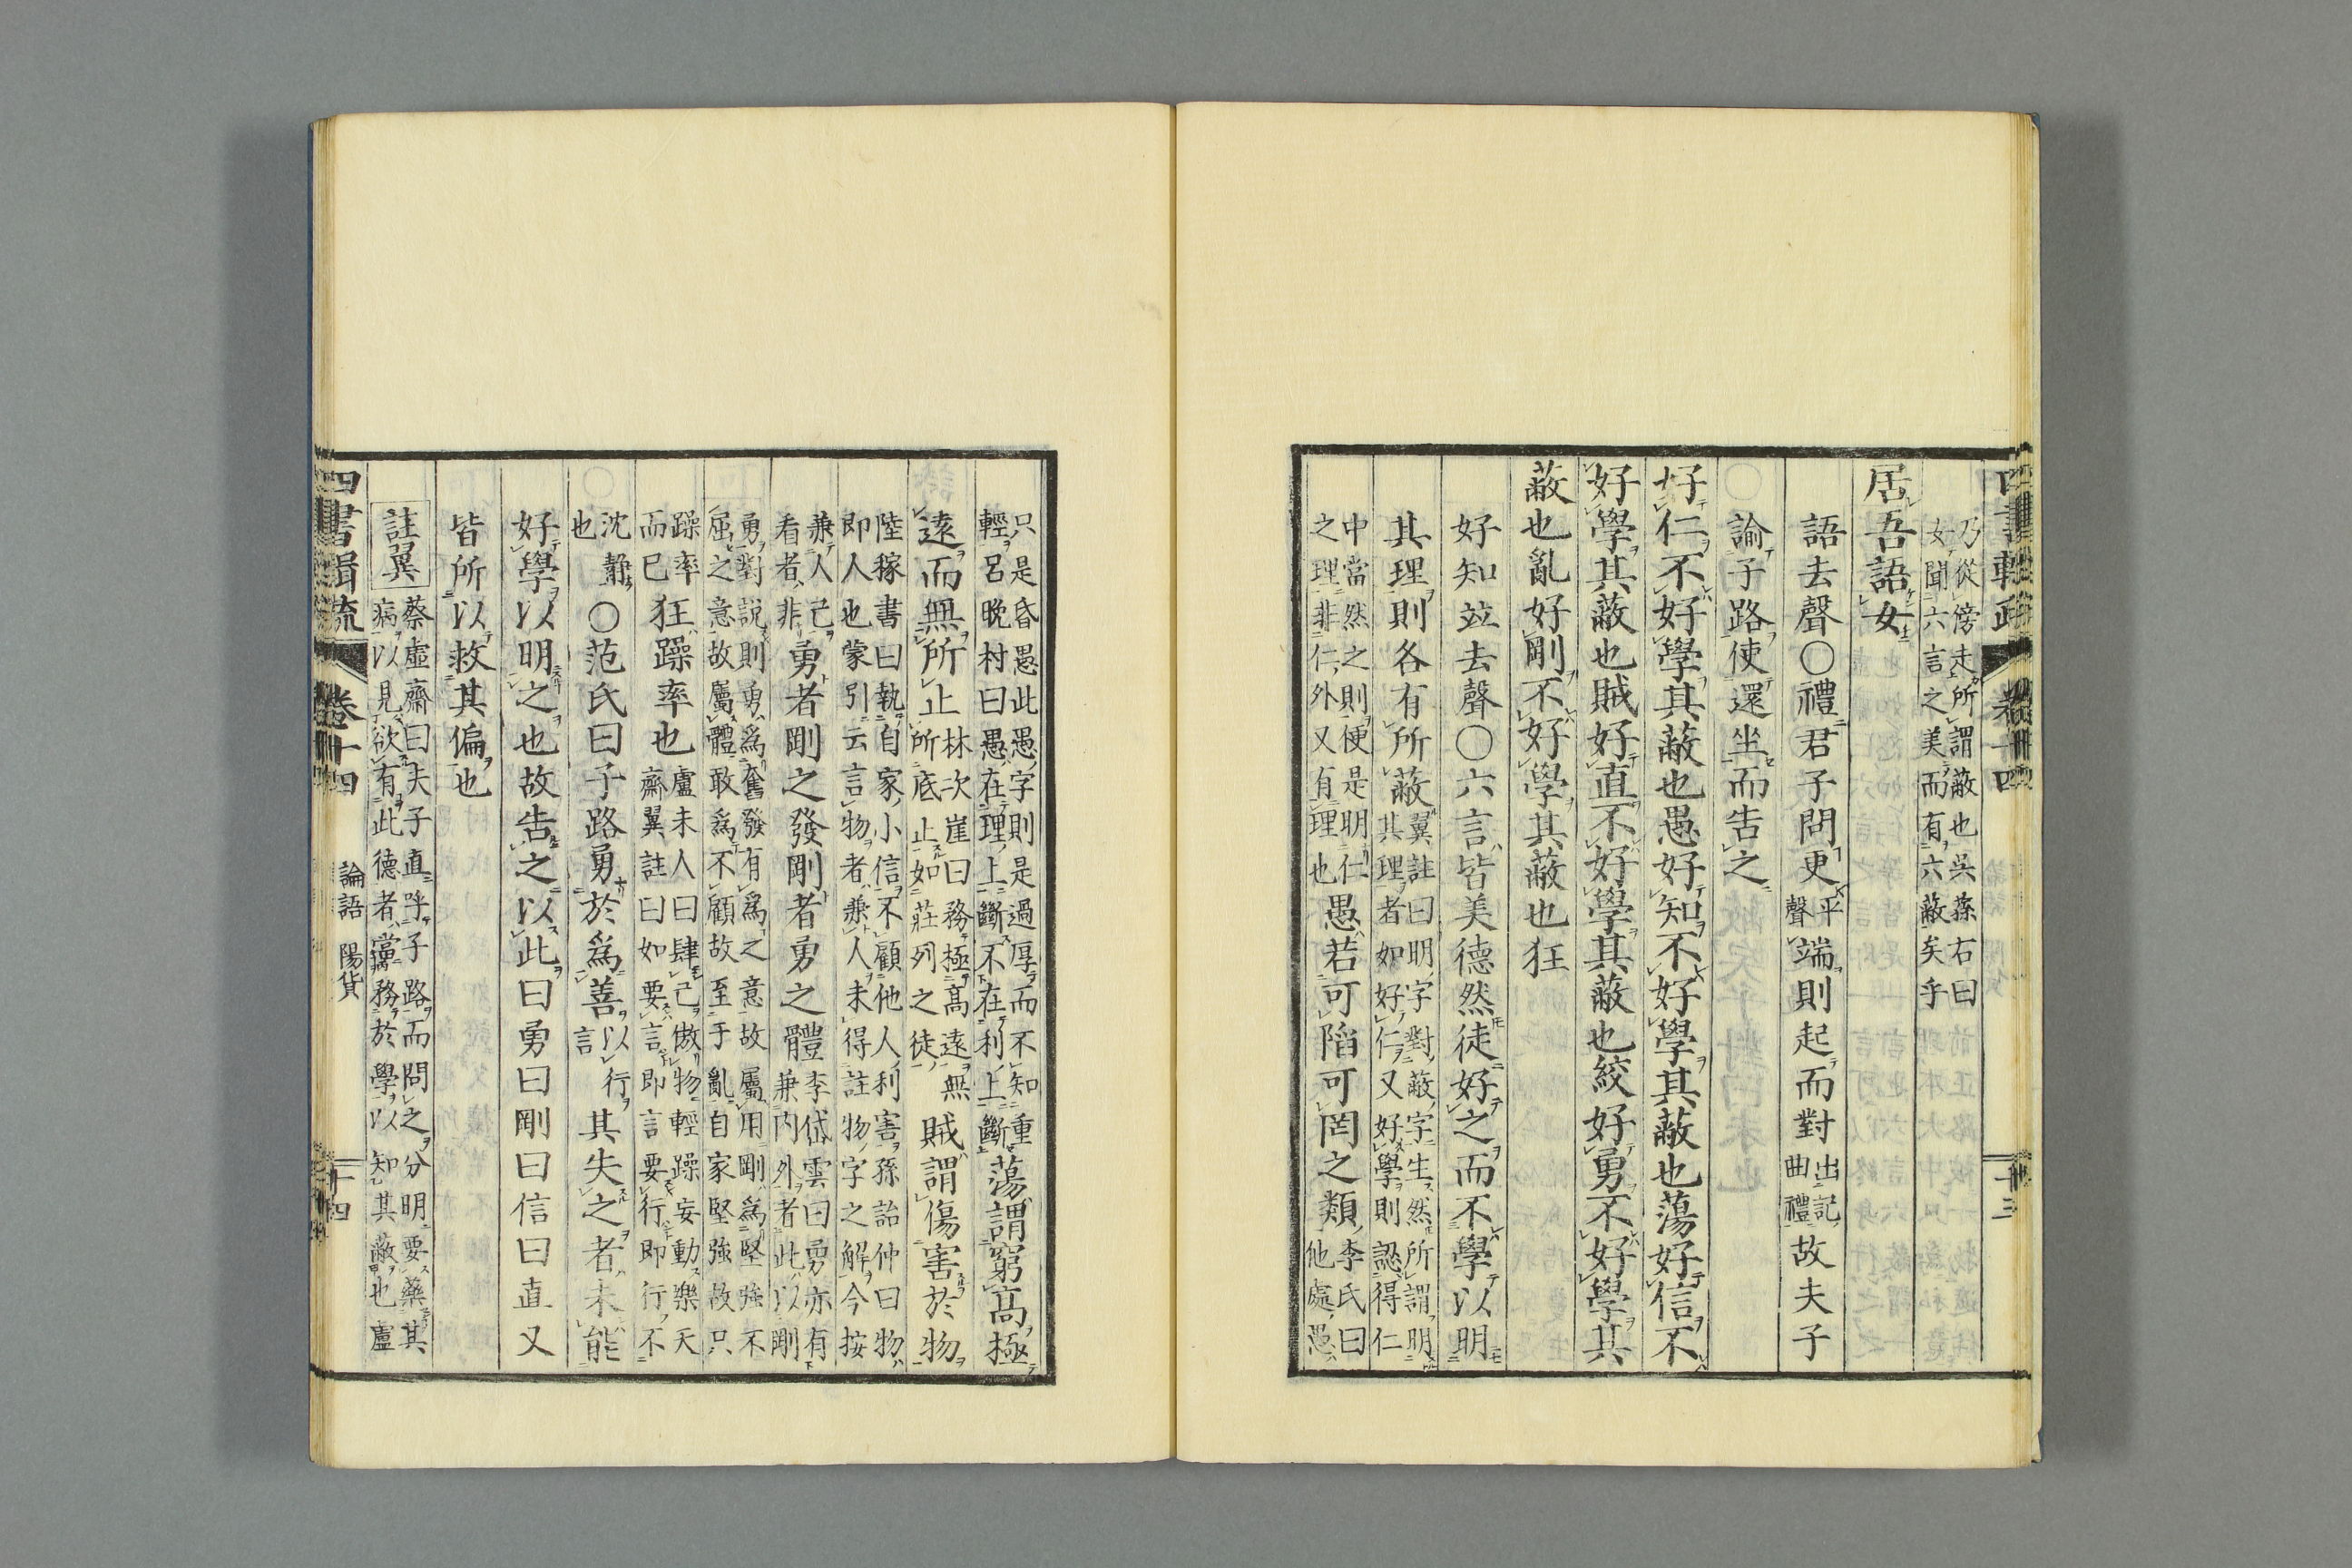 乃從傍走所謂蔽也吳蓀右曰
女聞六言之美而有六蔽矣乎
居吾語女
語去聲○禮君子問更平聲端則起而對出記曲禮故夫子
諭子路使還坐而告之
好仁不好學其蔽也愚好知不好學其蔽也蕩好信不
好學其蔽也賊好直不好學其蔽也絞好勇不好學其
蔽也亂好剛不好學其蔽也狂
好知竝去聲○六言皆美德然徒好之而不學以明
其理則各有所蔽翼註曰明字對蔽字生然所謂明其理者如好仁又好學則認得仁
中當然之則便是明仁之理非仁外又有理也愚若可陷可罔之類李氏曰他處愚
只是昏愚此愚字則是過厚而不知重輕呂晚村曰愚在理上斷不在利上斷蕩謂窮高極
遠而無所止林次崖曰務極高遠無所底止如莊列之徒賊謂傷害於物
陸稼書曰執自家小信不顧他人利害孫詒仲曰物即人也蒙引云言物者兼人未得註物字之解今按
兼人己看者非勇者剛之發剛者勇之體李岱雲曰勇亦有兼內外者此以剛
勇對說則勇爲奮發有爲之意故屬用剛爲堅強不屈之意故屬體敢爲不顧故至于亂自家堅強故只
躁率而已狂躁率也盧未人曰肆己傲物輕躁妄動樂天齋翼註曰如要言即言要行即行不
沈靜也○范氏曰子路勇於爲善以行言其失之者未能
好學以明之也故告之以此曰勇曰剛曰信曰直又
皆所以救其偏也
註翼蔡虛齋曰夫子直呼子路而問之分明要藥其病以見欲有此德者當務於學以知其蔽也盧
四書輯疏 卷十四 論語 陽貨 十四